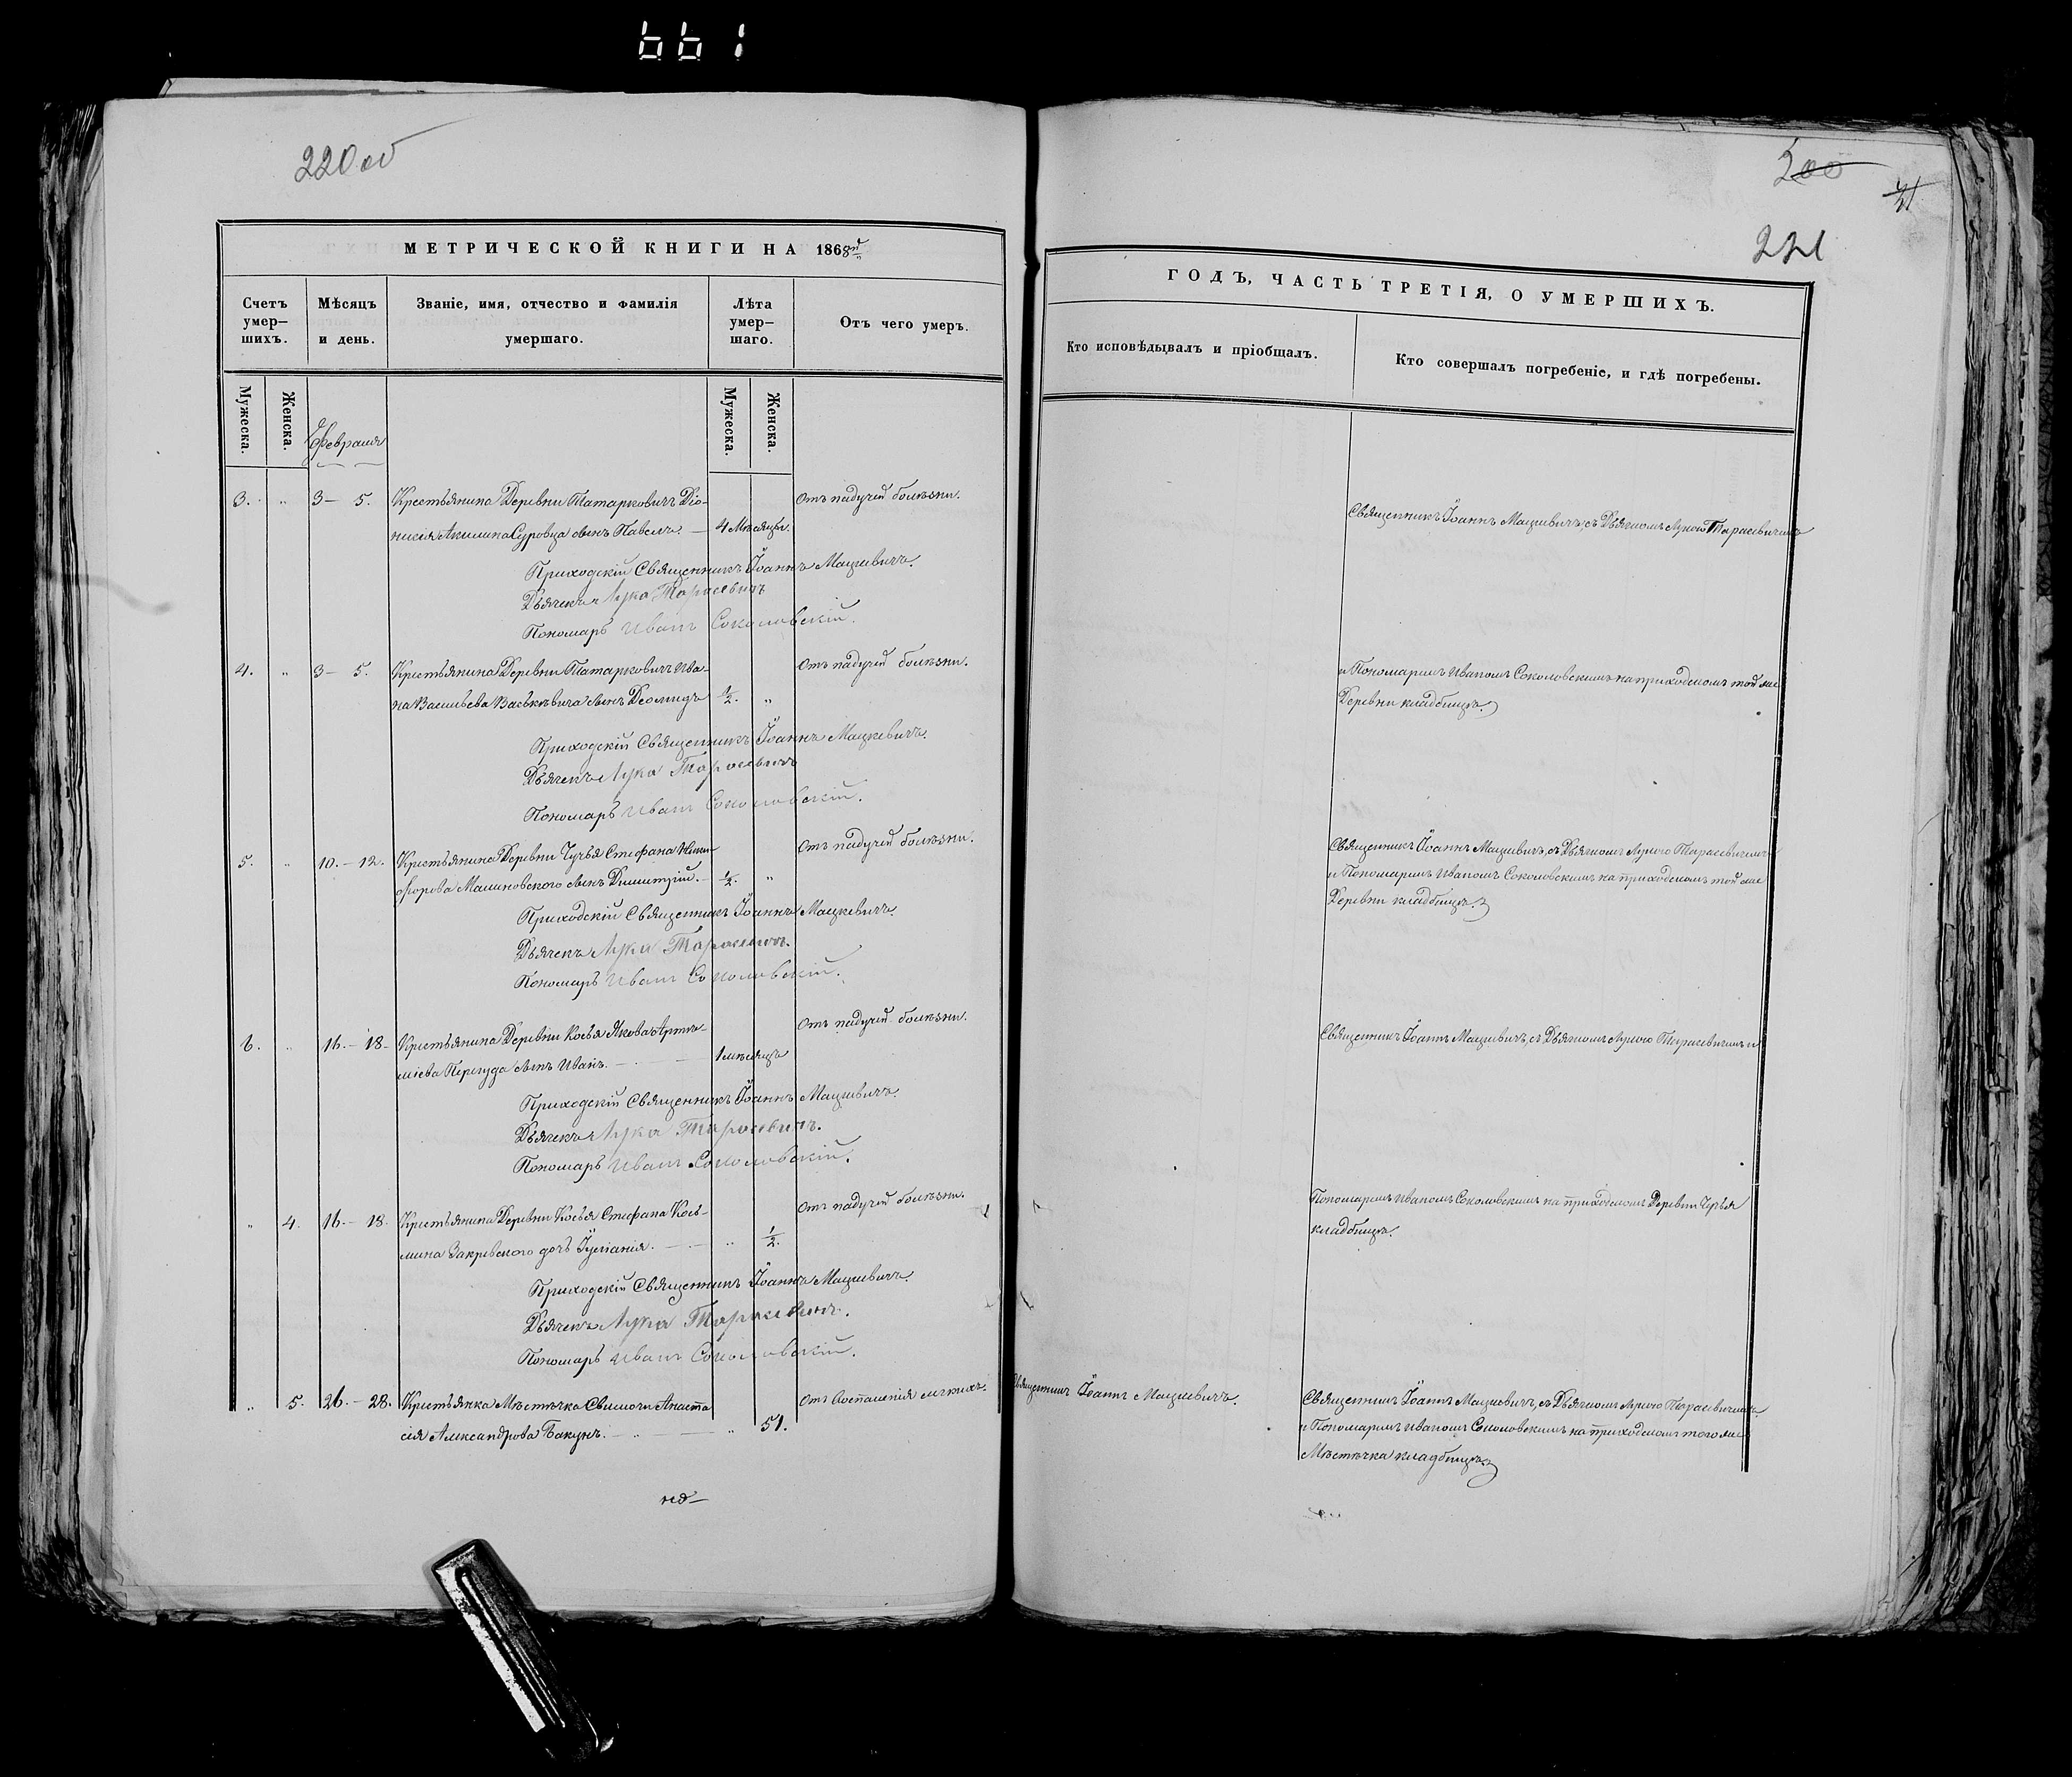 661
220 об
МЕТРИЧЕСКОЙ КНИГИ НА 1868й
Счетъ умер–шихъ.
Мѣсяцъ и день.
Званіе, имя, отчество и фамилія умершаго.
Лѣта умер–шаго.
Отъ чего умеръ.
Мужеска.
Женска.
Февраля
Мужеска.
Женска.
3. „ 3 – 5. Крестьянина Деревни Татарковичъ Діо- Отъ падучей болѣзни.
нисія Акилина Суровца сынъ Павелъ. – 4 Мѣсяцы.
Приходскій Священникъ Іоаннъ Мацкевичъ.
Дьячекъ Лука Тарасевичъ
Пономарь Иванъ Соколовскій.
4. „ 3 – 5. Крестьянина Деревни Татарковичъ Ива- Отъ падучей болѣзни.
на Васильева Васькевича сынъ Деомидъ ½. „
Приходскій Священникъ Іоаннъ Мацкевичъ.
Дьячекъ Лука Тарасевичъ
Пономарь Иванъ Соколовскій.
5. „ 10. – 12. Крестьянина Деревни Чучья Стефана Ники- Отъ падучей болѣзни.
форова Малиновского сынъ Димитрій. – ½. „
Приходскій Священникъ Іоаннъ Мацкевичъ.
Дьячекъ Лука Тарасевичъ.
Пономарь Иванъ Соколовскій.
6. „ 16. – 18. Крестьянина Деревни Косья Якова Арте- Отъ падучей болѣзни.
міева Перегуда сынъ Иванъ. – 1 мѣсяцъ
Приходскій Священникъ Іоаннъ Мацкевичъ.
Дьячекъ Лука Тарасевичъ.
Пономарь Иванъ Соколовскій.
„ 4. 16. – 18. Крестьянина Деревни Косья Стефана Козь- Отъ падучей болѣзни.
мина Закревского дочь Іуліанія. – „ ½.
Приходскій Священникъ Іоаннъ Мацкевичъ.
Дьячекъ Лука Тарасевичъ.
Пономарь Иванъ Соколовскій.
„ 5. 26. – 28. Крестьянка Мѣстечка Свислочи Анаста Отъ воспаленія легкихъ.
сія Александрова Бакунъ. – „ 51.
200
221
ГОДЪ, ЧАСТЬ ТРЕТІЯ, О УМЕРШИХЪ.
Кто исповѣдывалъ и пріобщалъ.
Кто совершалъ погребеніе, и гдѣ погребены.
Священникъ Іоаннъ Мацкевичъ, съ Дьячкомъ Лукою Тарасевичемъ
и Пономаремъ Иваномъ Соколовскимъ на приходскомъ той же
Деревни кладбищѣ.
Священникъ Іоаннъ Мацкевичъ, съ Дьячкомъ Лукою Тарасевичемъ
и Пономаремъ Иваномъ Соколовскимъ на приходскомъ той же
Деревни кладбищѣ.
Священникъ Іоаннъ Мацкевичъ, съ Дьячкомъ Лукою Тарасевичемъ и
Пономаремъ Иваномъ Соколовскимъ на приходскомъ Деревни Чучья
кладбищѣ.
Священникъ Іоаннъ Мацкевичъ.
Священникъ Іоаннъ Мацкевичъ, съ Дьячкомъ Лукою Тарасевичемъ
и Пономаремъ Иваномъ Соколовскимъ на приходскомъ того же
Мѣстечка кладбищѣ.